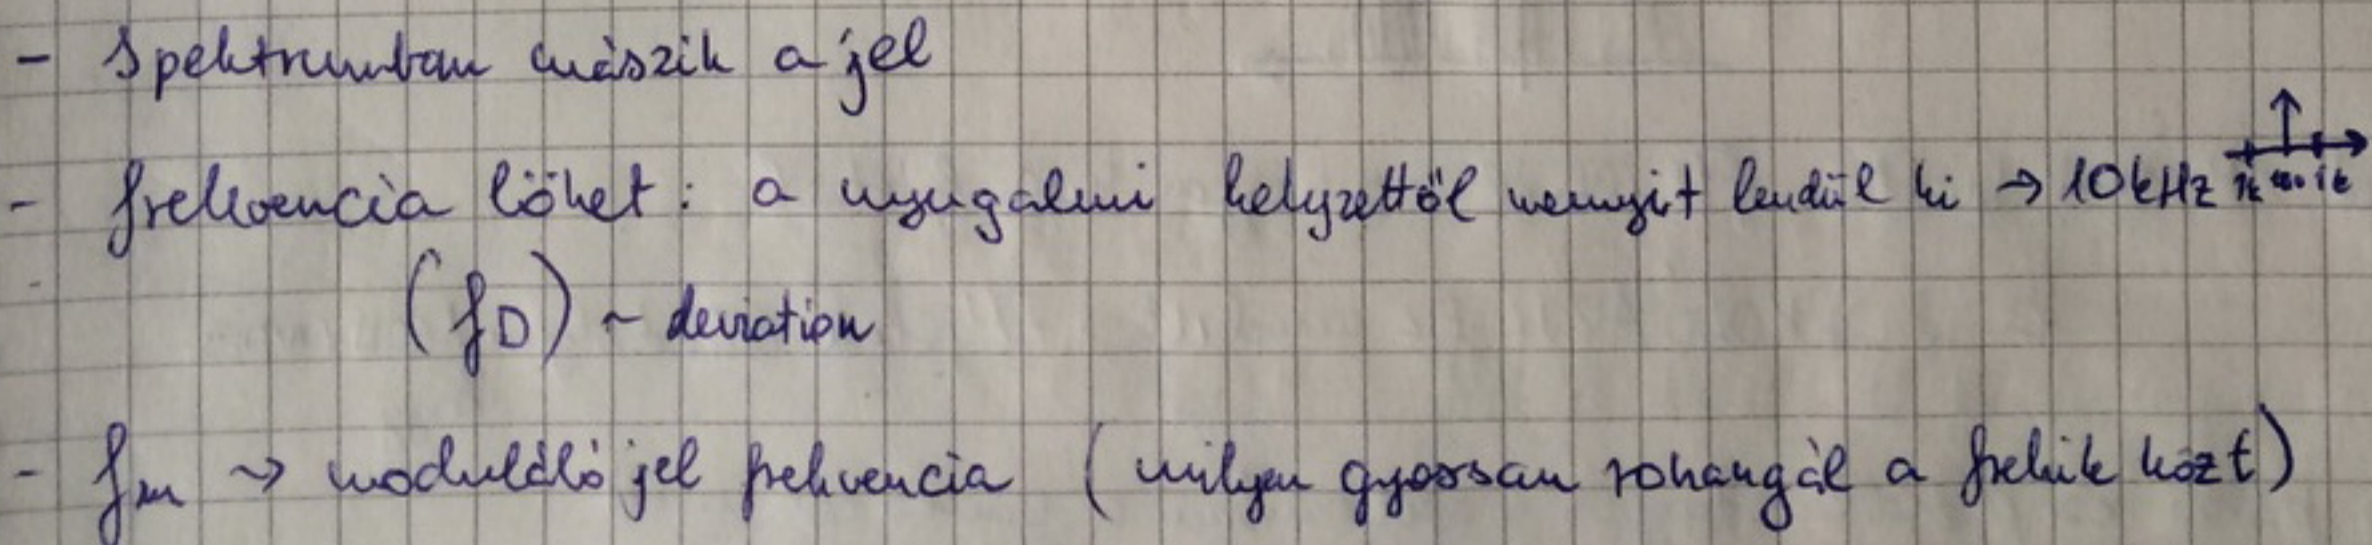 - Spektrumban mászik a jel
- frekvencia löket: a nyugalmi helyzettől mennyit lendül ki → 10kHz
(fD) ~ deviation
- fm → moduláló jel frekvencia (milyen gyorsan rohangál a frekik közt)